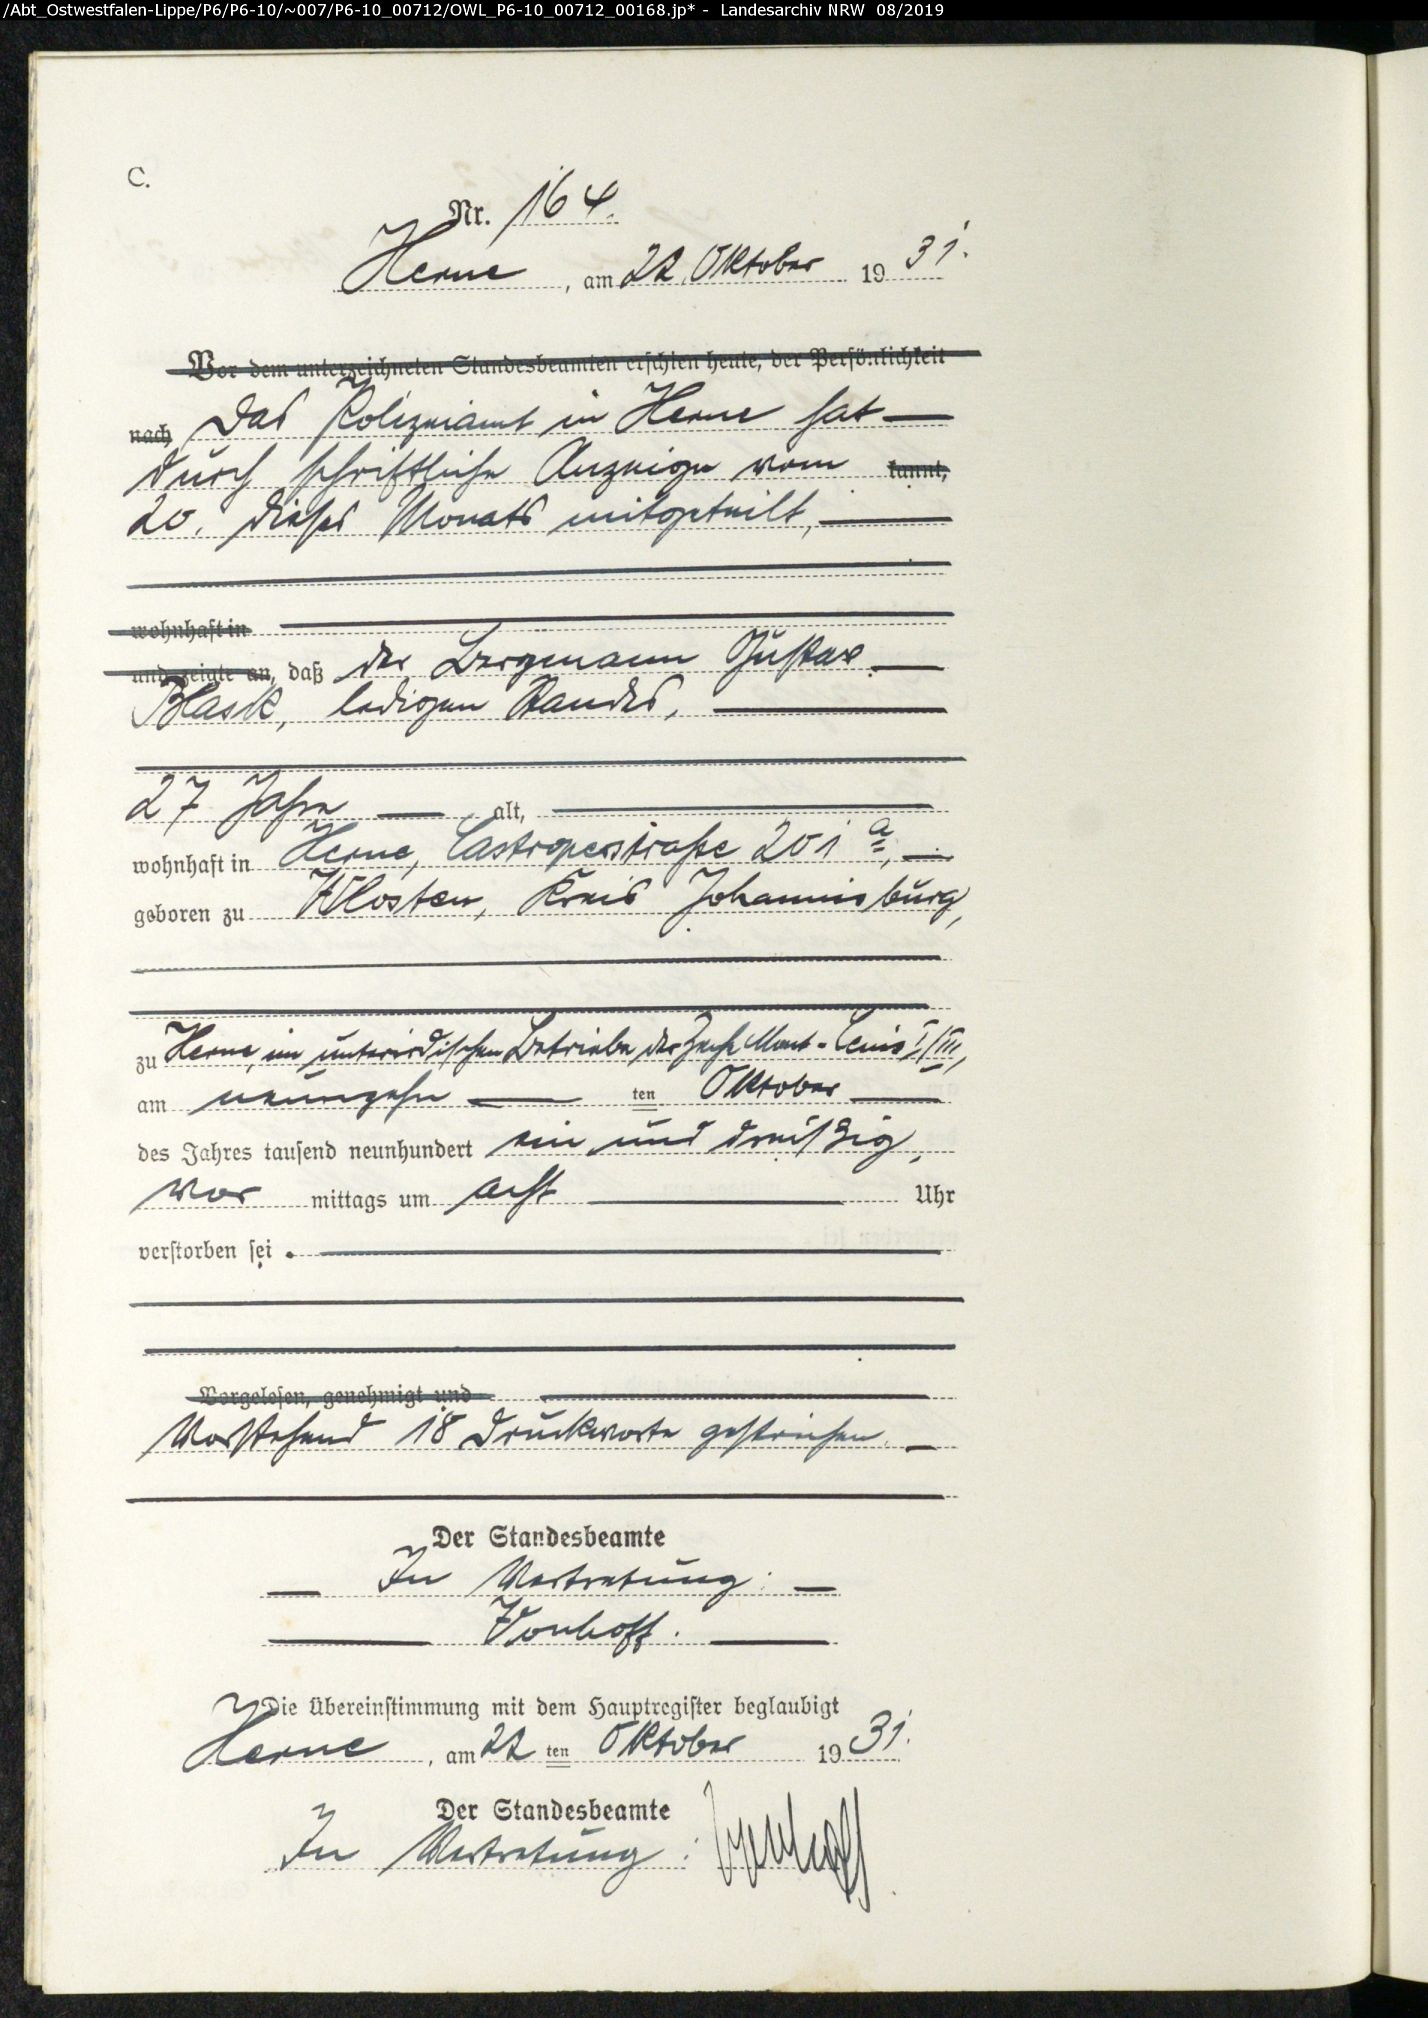 /Abt_Ostwestfalen-Lippe/P6/P6-10/~007/P6-10_00712/OWL_P6-10_00712_00168.jp* - Landesarchiv NRW 08/2019
C.
Nr. 164.
Herne, am 22. Oktober 1931.
Vor dem unterzeichneten Standesbeamten erschien heute, der Persönlichkeit
nach Das Polizeiamt in Herne hat
durch schriftliche Anzeige vom kannt,
20. dieses Monats mitgeteilt,
wohnhaft in
und zeigte an, daß der Bergmann Gustav
Blask, ledigen Standes,
27 Jahre alt,
wohnhaft in Herne, Castroperstraße 201 a,
geboren zu Klosten, Kreis Johannisburg,
zu Herne, im unterirdischen Betriebe der Zeche Mont-Cenis I/III,
am neunzehn ten Oktober
des Jahres tausend neunhundert ein und dreißig,
vor mittags um acht Uhr
verstorben sei.
Vorgelesen, genehmigt und
Vorstehend 18 Druckworte gestrichen.
Der Standesbeamte
In Vertretung:
Vonhoff.
Die Übereinstimmung mit dem Hauptregister beglaubigt
Herne, am 22 ten Oktober 1931.
Der Standesbeamte
In Vertretung: Vonhoff